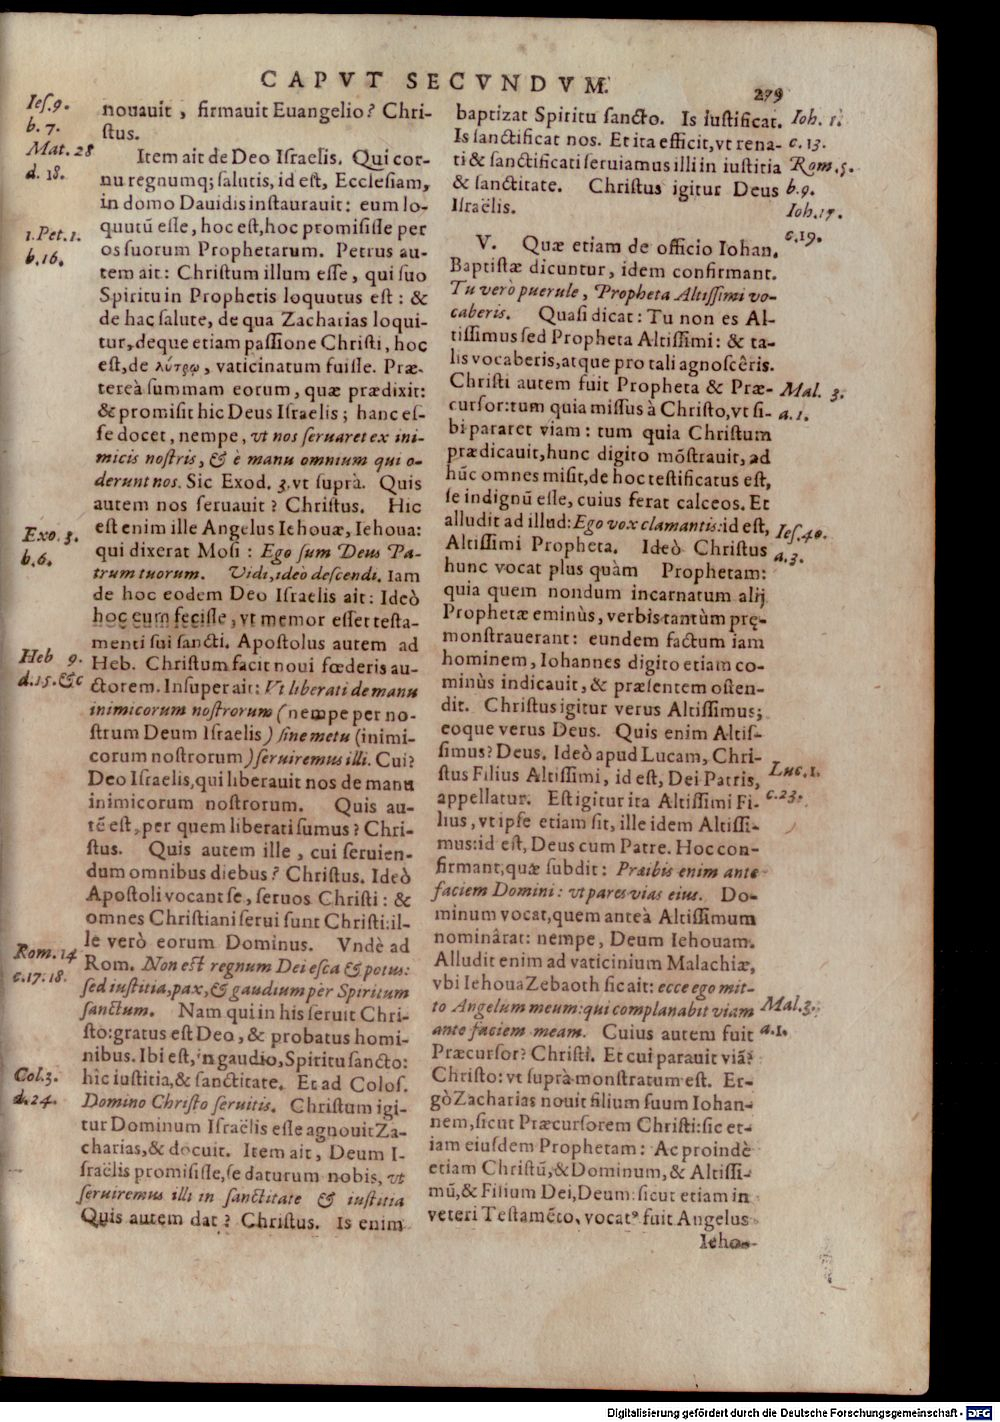 CAPVT SECVNDVM.
279
Ies.9.
b.7.
Mat. 28
d. 18.
1.Pet.1.
b.16.
Exo. 3.
b.6.
Heb 9.
d.15.&c
Rom. 14
c.17.18.
Col.3.
d.24.
nouauit, firmauit Euangelio? Chri-
stus.
Item ait de Deo Israelis. Qui cor-
nu regnumq; salutis, id est, Ecclesiam,
in domo Dauidis instaurauit: eum lo-
quutū esse, hoc est, hoc promisisse per
os suorum Prophetarum. Petrus au-
tem ait: Christum illum esse, qui suo
Spiritu in Prophetis loquutus est: &
de hac salute, de qua Zacharias loqui-
tur, deque etiam passione Christi, hoc
est, de λύτρῳ, vaticinatum fuisse. Præ-
tereà summam eorum, quæ prædixit:
& promisit hic Deus Israelis; hanc es-
se docet, nempe, vt nos seruaret ex ini-
micis nostris, & è manu omnium qui o-
derunt nos. Sic Exod. 3. vt suprà. Quis
autem nos seruauit? Christus. Hic
est enim ille Angelus Iehouæ, Iehoua:
qui dixerat Mosi: Ego sum Deus Pa-
trum tuorum. Vidi, ideò descendi. Iam
de hoc eodem Deo Israelis ait: Ideò
hoc eum fecisse, vt memor esset testa-
menti sui sancti. Apostolus autem ad
Heb. Christum facit noui fœderis au-
ctorem. Insuper ait: Vt liberati de manu
inimicorum nostrorum (nempe per no-
strum Deum Israelis) sine metu (inimi-
corum nostrorum) seruiremus illi. Cui?
Deo Israelis, qui liberauit nos de manu
inimicorum nostrorum. Quis au-
tē est, per quem liberati sumus? Chri-
stus. Quis autem ille, cui seruien-
dum omnibus diebus? Christus. Ideò
Apostoli vocant se, seruos Christi: &
omnes Christiani serui sunt Christi: il-
le verò eorum Dominus. Vndè ad
Rom. Non est regnum Dei esca & potus:
sed iustitia, pax, & gaudium per Spiritum
sanctum. Nam qui in his seruit Chri-
sto: gratus est Deo, & probatus homi-
nibus. Ibi est, in gaudio, Spiritu sancto:
hic iustitia, & sanctitate. Et ad Colos.
Domino Christo seruitis. Christum igi-
tur Dominum Israëlis esse agnouit Za-
charias, & docuit. Item ait, Deum I-
sraëlis promisisse, se daturum nobis, vt
seruiremus illi in sanctitate & iustitia
Quis autem dat? Christus. Is enim
baptizat Spiritu sancto. Is iustificat.
Is sanctificat nos. Et ita efficit, vt rena-
ti & sanctificati seruiamus illi in iustitia
& sanctitate. Christus igitur Deus
Israëlis.
V. Quæ etiam de officio Iohan.
Baptistæ dicuntur, idem confirmant.
Tu verò puerule, Propheta Altissimi vo-
caberis. Quasi dicat: Tu non es Al-
tissimus sed Propheta Altissimi: & ta-
lis vocaberis, atque pro tali agnoscêris.
Christi autem fuit Propheta & Præ-
cursor: tum quia missus à Christo, vt si-
bi pararet viam: tum quia Christum
prædicauit, hunc digito mōstrauit, ad
hūc omnes misit, de hoc testificatus est,
se indignū esse, cuius ferat calceos. Et
alludit ad illud: Ego vox clamantis: id est,
Altissimi Propheta. Ideò Christus
hunc vocat plus quàm Prophetam:
quia quem nondum incarnatum alij
Prophetæ eminùs, verbis tantùm prę-
monstrauerant: eundem factum iam
hominem, Iohannes digito etiam co-
minùs indicauit, & præsentem osten-
dit. Christus igitur verus Altissimus;
eoque verus Deus. Quis enim Altis-
simus? Deus. Ideò apud Lucam, Chri-
stus Filius Altissimi, id est, Dei Patris,
appellatur. Est igitur ita Altissimi Fi-
lius, vt ipse etiam sit, ille idem Altissi-
mus: id est, Deus cum Patre. Hoc con-
firmant, quæ subdit: Præibis enim ante
faciem Domini: vt pares vias eius. Do-
minum vocat, quem anteà Altissimum
nominârat: nempe, Deum Iehouam.
Alludit enim ad vaticinium Malachiæ,
vbi Iehoua Zebaoth sic ait: ecce ego mit-
to Angelum meum: qui complanabit viam
ante faciem meam. Cuius autem fuit
Præcursor? Christi. Et cui parauit viā?
Christo: vt suprà monstratum est. Er-
gò Zacharias nouit filium suum Iohan-
nem, sicut Præcursorem Christi: sic et-
iam eiusdem Prophetam: Ac proindè
etiam Christū, & Dominum, & Altissi-
mū, & Filium Dei, Deum: sicut etiam in
veteri Testamēto, vocatꝰ fuit Angelus
Ieho-
Ioh. 1.
c. 13.
Rom. 5.
b.9.
Ioh.17.
c.19.
Mal. 3.
a.1.
Ies.40.
a.3.
Luc.1.
c.23.
Mal.3.
a.1.
Digitalisierung gefördert durch die Deutsche Forschungsgemeinschaft - DFG